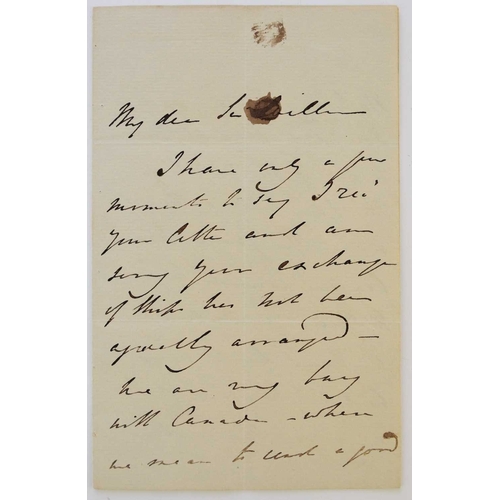 My dear Sir William
I have only a few
moments to say I rec'd
your letter and am
sorry your exchange
of ships has not been
agreeably arranged -
we are very busy
with Canada - where
we mean to send a good